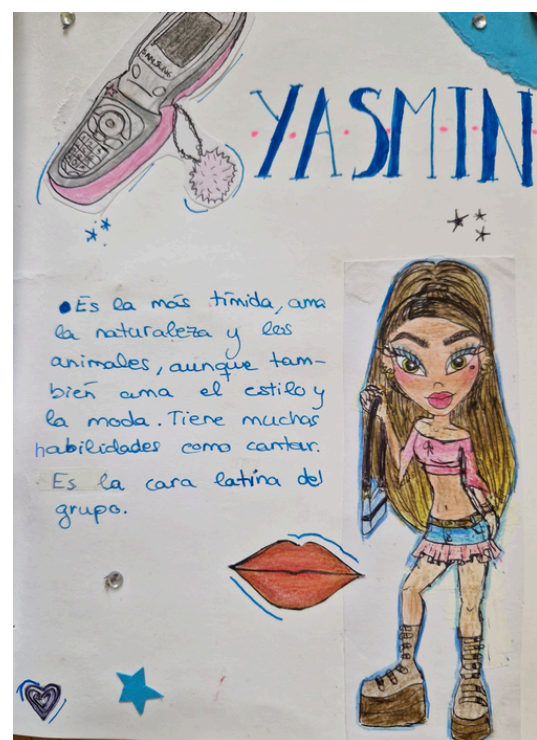 SAMSUNG
YASMIN
Es la más tímida, ama
la naturaleza y los
animales, aunque tam-
bien ama el estilo y
la moda. Tiene muchas
habilidades como cantar.
Es la cara latina del
grupo.